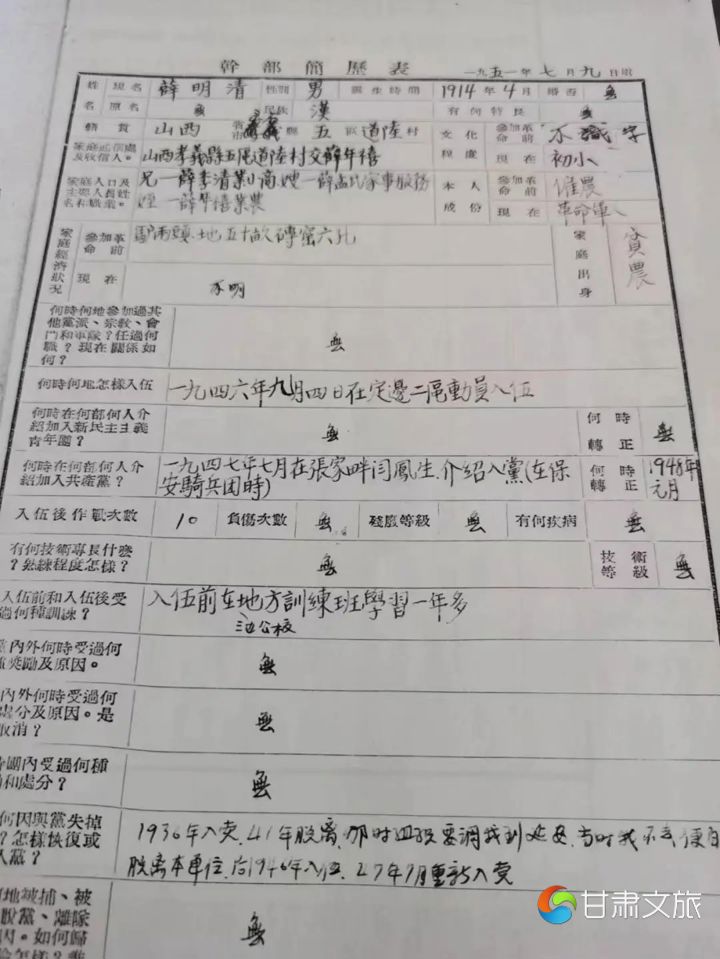 幹部簡歷表 一九五一年七月九日填
姓 現名 薛明清 性別 男 誕生時間 1914年4月 婚否 無
名 原名 無 民族 漢 有何特長 無
籍貫 山西 省市 孝義縣 五區 道陸村 文化 參加革命前 不識字
家庭通信處及收信人。 山西孝義縣五區道陸村交薛年禧 程度 現在 初小
家庭人口及主要人員姓名和職業。 兄一薛李清業小商,嫂一薛孟氏家事服務 本人 參加革命前 僱農
姪一薛年禧業農 成份 現在 革命軍人
家庭經濟狀況 參加革命前 地五十畝磚窰六孔 家庭出身 貧農
現在 不明
何時何地參加過其他黨派、宗教、會門和軍隊?任過何職?現在關係如何? 無
何時何地怎樣入伍 一九四六年九月四日在定邊二區動員入伍
何時在何部何人介紹加入新民主主義青年團? 無 何時轉正 無
何時在何部何人介紹加入共產黨? 一九四七年七月在張家畔闫鳳生.介紹入黨(在保安騎兵团時) 何時轉正 1948年元月
入伍後作戰次數 10 負傷次數 無 殘廢等級 無 有何疾病 無
有何技術專長什麼?熟練程度怎樣? 無 技術等級 無
入伍前和入伍後受過何種訓練? 入伍前在地方訓練班學習一年多
三边公校
黨內外何時受過何種獎勵及原因。 無
內外何時受過何處分及原因。是取消? 無
團內受過何種和處分? 無
何因與黨失掉?怎樣恢復或入黨? 1936年入党.41年脱离,那时组织要調我到延安,当时我不去便自
脱离本單位.后1946年入伍.47年7月重新入党
地被捕、被脫黨、離隊因。如何歸 無
甘肃文旅